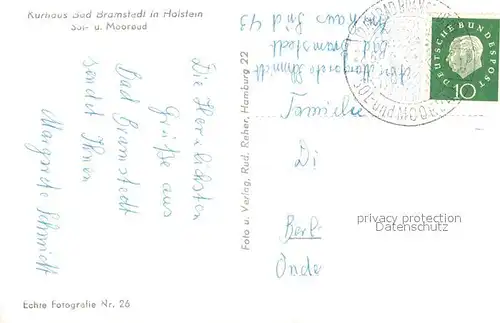 Kurhaus Bad Bramstedt in Holstein
Sol- u. Moorbad
Die Herzlichsten
Grüße aus
Bad Bramstedt
sendet Ihnen
Margarete Schmidt
Echte Fotografie Nr. 26
Foto u. Verlag, Rud. Reher, Hamburg 22
Margarete Schmidt
Bad Bramstedt
Kurhaus Süd 43
DEUTSCHE BUNDESPOST
10
SOL-UND MOORBAD
Di
Berl
privacy protection
Datenschutz